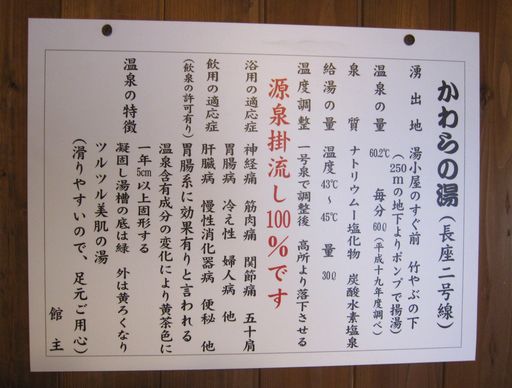 かわらの湯(長座二号線)
湧出地 湯小屋のすぐ前 竹やぶの下
(250mの地下よりポンプで揚湯)
温泉の量 60.2℃ 毎分60ℓ(平成十九年度調べ)
泉質 ナトリウムー塩化物 炭酸水素塩泉
給湯の量 温度43℃〜45℃ 量30ℓ
温度調整 一号泉で調整後 高所より落下させる
源泉掛流し100%です
浴用の適応症 神経痛 筋肉痛 関節痛 五十肩
胃腸病 冷え性 婦人病 他
飲用の適応症 肝臓病 慢性消化器病 便秘 他
(飲泉の許可有り) 胃腸系に効果有りと言われる
温泉の特徴 温泉含有成分の変化により黄茶色に
一年5cm以上固形する
凝固し湯槽の底は緑 外は黄ろくなり
ツルツル美肌の湯
(滑りやすいので、足元ご用心)
館主